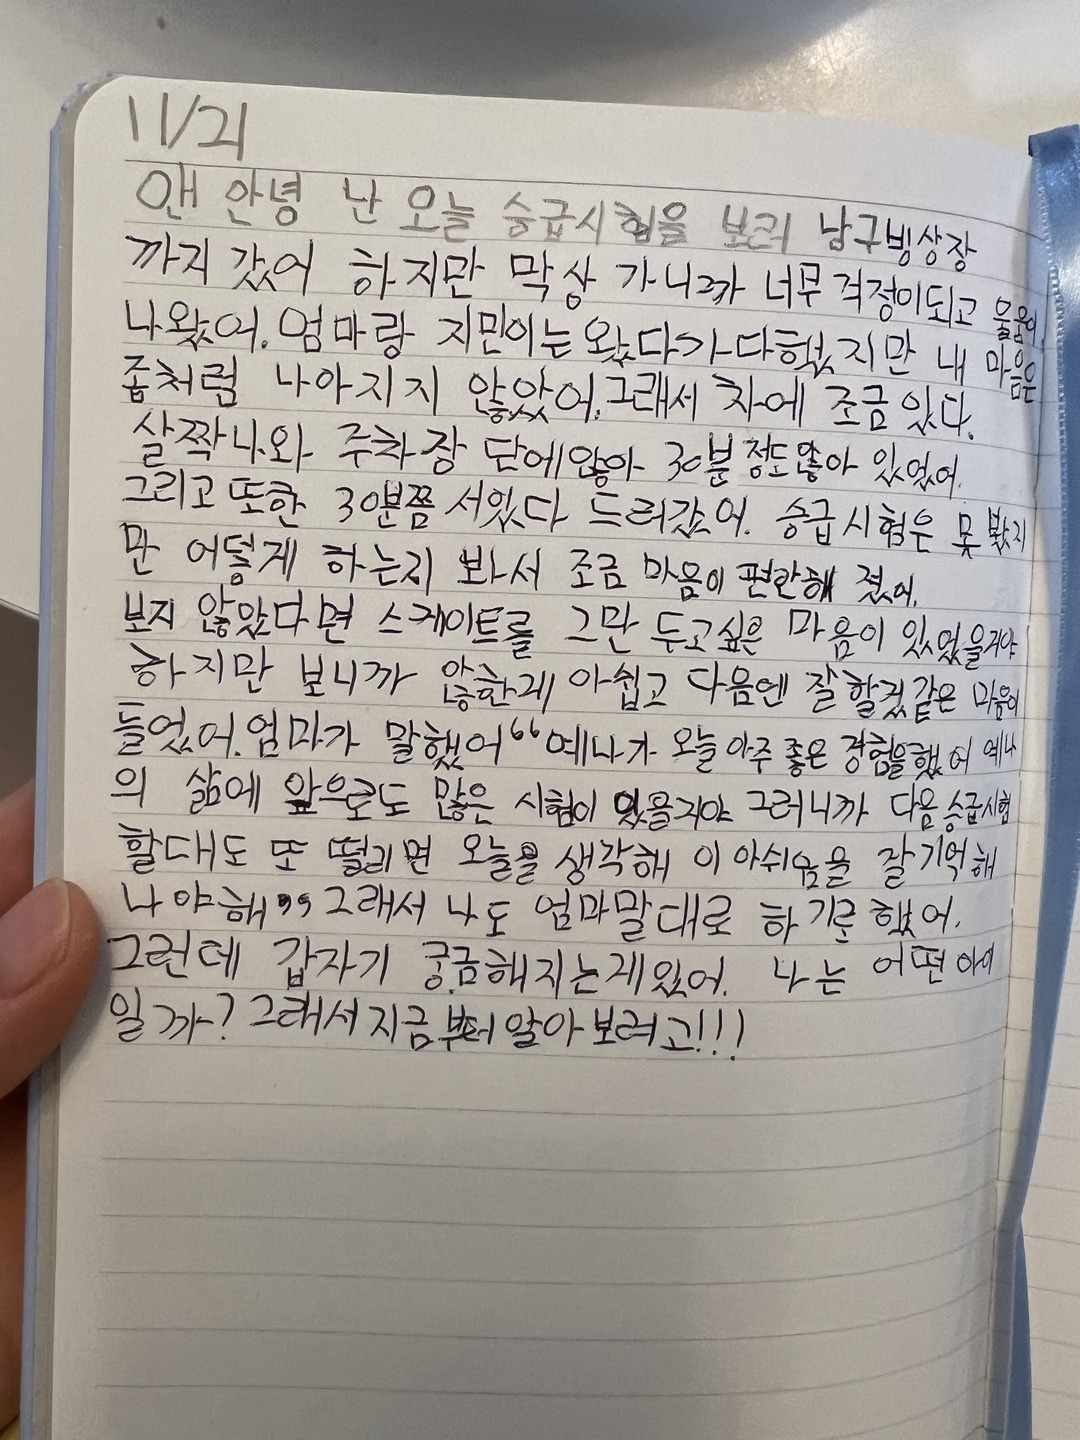 11/21
앤 안녕 난 오늘 승급시험을 보러 남구빙상장
까지 갔어 하지만 막상 가니까 너무 걱정이되고 울음이
나왔어. 엄마랑 지민이는 왔다가다했지만 내 마음은
좀처럼 나아지지 않았어. 그래서 차에 조금 있다.
살짝나와 주차장 단에앉아 30분 정도 앉아 있었어.
그리고 또한 30분쯤 서있다 드러갔어. 승급시험은 못 봤지
만 어떻게 하는지 봐서 조금 마음이 편안해 졌어.
보지 않았다면 스케이트를 그만 두고싶은 마음이 있었을거야
하지만 보니까 안한게 아쉽고 다음엔 잘할것같은 마음이
들었어. 엄마가 말했어 “예나가 오늘 아주 좋은 경험을했어 예나
의 삶에 앞으로도 많은 시험이 있을거야 그러니까 다음 승급시험
할대도 또 떨리면 오늘을 생각해 이 아쉬움을 잘 기억해
나야해” 그래서 나도 엄마말대로 하기로 했어.
그런데 갑자기 궁금해지는게있어. 나는 어떤아이
일까? 그래서 지금부터 알아보려고!!!